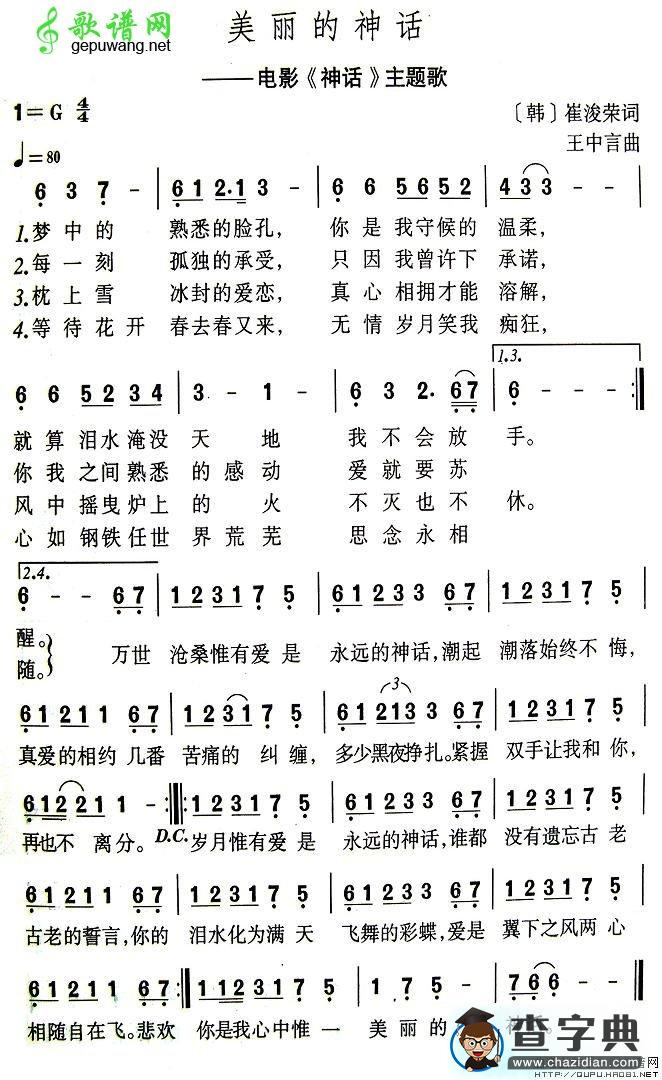 歌谱网
gepuwang.net
美丽的神话
——电影《神话》主题歌
1=G 4/4
♩=80
〔韩〕崔浚荣词
王中言曲
6 3 7 - 6 1 2·1 3 - 6 6 5 6 5 2 4 3 3 -
1.梦中的 熟悉的脸孔, 你是我守候的温柔,
2.每一刻 孤独的承受, 只因我曾许下承诺,
3.枕上雪 冰封的爱恋, 真心相拥才能溶解,
4.等待花开 春去春又来, 无情岁月笑我痴狂,
1.3.
6 6 5 2 3 4 3 - 1 - 6 3 2· 6 7 6 - - :
就算泪水淹没天地 我不会放手。
你我之间熟悉的感动 爱就要苏
风中摇曳炉上的火 不灭也不休。
心如钢铁任世界荒芜 思念永相
2.4.
6 - - 6 7 1 2 3 1 7 5 6 1 2 3 3 6 7 1 2 3 1 7 5
醒。 万世 沧桑惟有爱是 永远的神话,潮起 潮落始终不悔,
随。
6 1 2 1 1 6 7 1 2 3 1 7 5 6 1 2 1 3 3 6 7 1 2 3 1 7 5
真爱的相约几番 苦痛的纠缠, 多少黑夜挣扎。紧握 双手让我和你,
6 1 2 2 2 1 1 - 6 7 : 1 2 3 1 7 5 6 1 2 3 3 6 7 1 2 3 1 7 5
再也不离分。 D.C. 岁月惟有爱是 永远的神话,谁都 没有遗忘古老
6 1 2 1 1 6 7 1 2 3 1 7 5 6 1 2 3 3 6 7 1 2 3 1 7 5
古老的誓言,你的 泪水化为满天 飞舞的彩蝶,爱是 翼下之风两心
6 1 2 1 1 6 7 : 1 2 3 1 7 5 1 7 5 - 7 6 6 -
相随自在飞。悲欢 你是我心中惟一 美丽的
查字典
www.chazidian.com